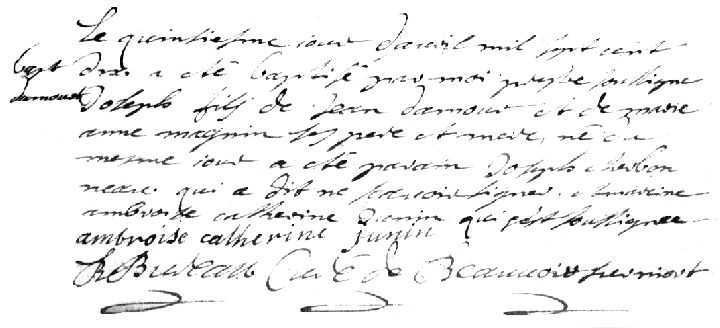 Le quinsiesme iour d'avril mil sept cent
bapt
damours
dix a eté baptisé par moi prestre soussigné
Joseph fils de Jean damour et de marie
anne magnin ses pere et mere, né du
mesme iour a eté parain Joseph charbon
neau qui a dit ne scavoir signer, et maraine
ambroise catherine Junin qui s'est soussignee
ambroise catherine Junin
Bureau Curé de